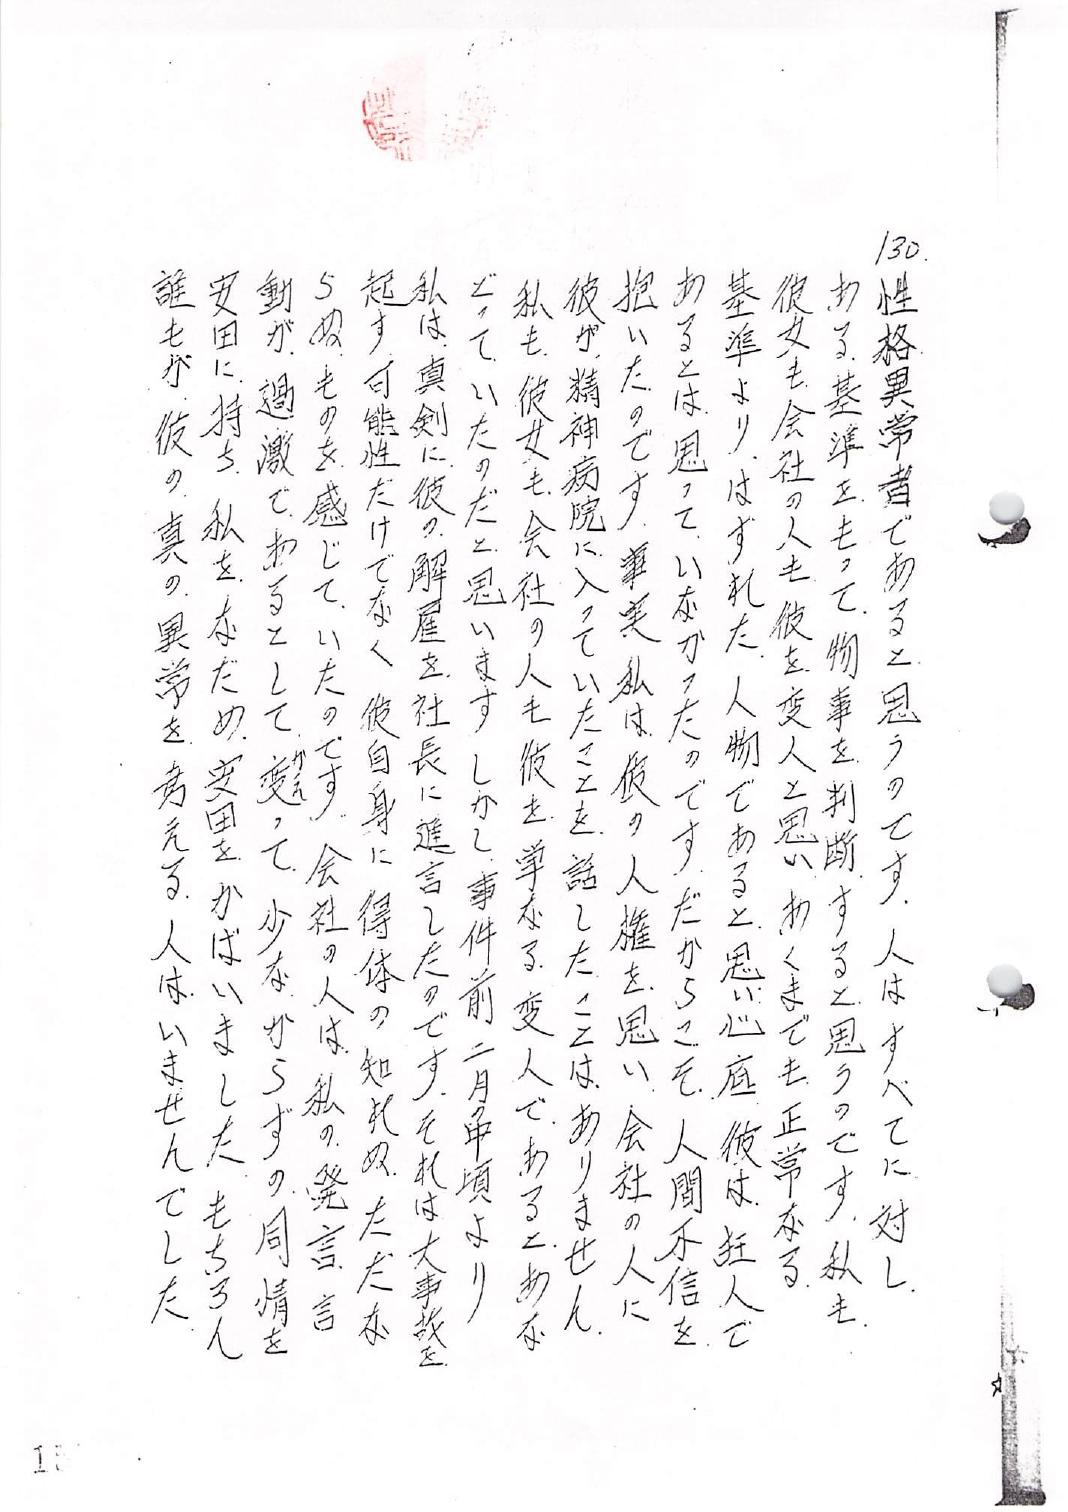 130.
性格異常者であると思うのです、人はすべてに対し、
ある基準をもって物事を判断すると思うのです、私も、
彼女も会社の人も彼を変人と思い、あくまでも正常なる
基準より、はずれた、人物であると思い心底彼は狂人で
あるとは思っていなかったのです、だからこそ、人間不信を
抱いたのです、事実私は彼の人権を思い、会社の人に
彼が精神病院に入っていたことを、話したことは、ありません、
私も、彼女も、会社の人も彼を単なる変人であると、あな
どっていたのだと思います しかし、事件前二月中頃より
私は、真剣に彼の解雇を社長に進言したのです、それは大事故を
起す、可能性だけでなく彼自身に得体の知れぬ、ただな
らぬ、ものを感じていたのです、会社の人は、私の発言、言
動が、過激であるとして、変って、少なからずの同情を
がえ
安田に、持ち、私を、なだめ、安田を、かばいました もちろん
誰もが、彼の、真の異常を、考える、人は、いませんでした